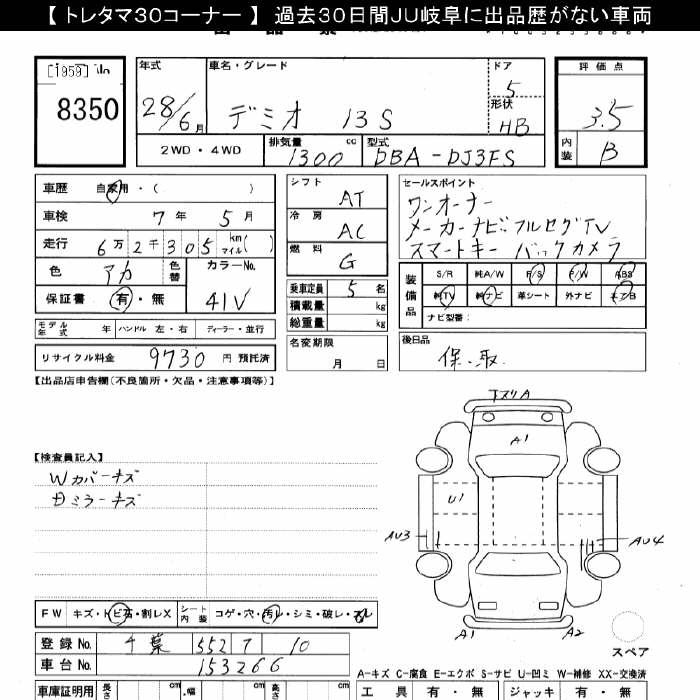 【 トレタマ30コーナー 】 過去30日間JU岐阜に出品歴がない車両
[1959]
8350
年式
28/6月
車名・グレード
デミオ 13S
ドア
5
形状
HB
評価点
3.5
内装
B
2WD・4WD
排気量
1300 cc
型式
DBA-DJ3FS
車歴 自家用・( )
車検 7年 5月
走行 6万2千305 km マイル( )
色 アカ 色替 カラーNo. 41V
保証書 有・無
モデル年式 年 ハンドル 左・右 ディーラー・並行
リサイクル料金 9730 円 預託済
シフト AT
冷房 AC
燃料 G
乗車定員 5 名
積載量 kg
総重量 kg
名変期限
月 日
セールスポイント
ワンオーナー
メーカーナビフルセグTV
スマートキー バックカメラ
装備品
S/R 純A/W P/S P/W ABS
純TV 純ナビ 革シート 外ナビ エアB
ナビ型番:
後日品
保.取
【出品店申告欄(不良箇所・欠品・注意事項等)】
【検査員記入】
Wカバーキズ
日ミラーキズ
下スリA
A1
U1
AU3
AU4
A1
A2
スペア
FW キズ・トビ石・割レX シート内装 コゲ・穴・汚レ・シミ・破レ・スレ
登録No. 千葉 552 7 10
車台No. 153266
A-キズ C-腐食 E-エクボ S-サビ U-凹ミ W-補修 XX-交換済
車庫証明用 長さ cm 幅 cm 高さ cm
工具 有・無 ジャッキ 有・無